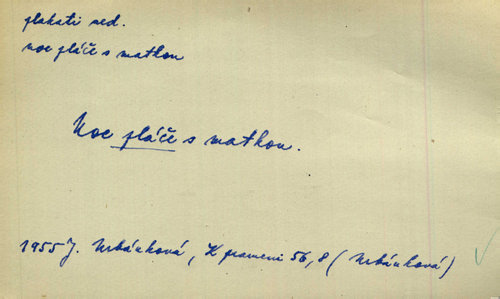 plakati ned.
noc pláče s matkou
Noc pláče s matkou.
1955 J. Urbánková, K prameni 56, 8 (Urbánková)